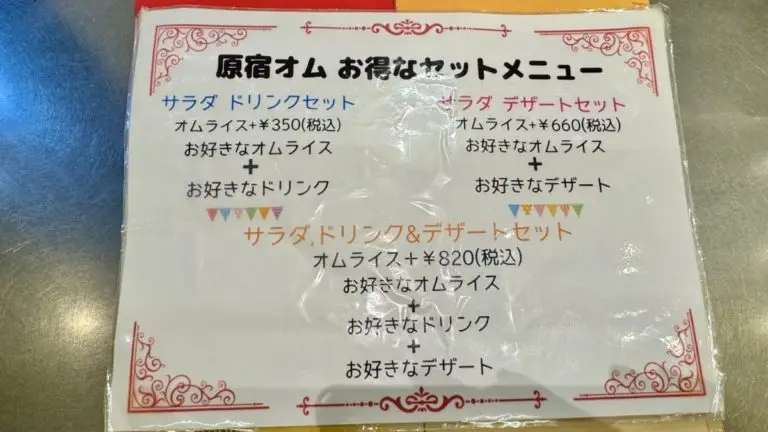 原宿オム お得なセットメニュー
サラダ ドリンクセット
オムライス+¥350(税込)
お好きなオムライス
+
お好きなドリンク
サラダ デザートセット
オムライス+¥660(税込)
お好きなオムライス
+
お好きなデザート
サラダ,ドリンク&デザートセット
オムライス+¥820(税込)
お好きなオムライス
+
お好きなドリンク
+
お好きなデザート